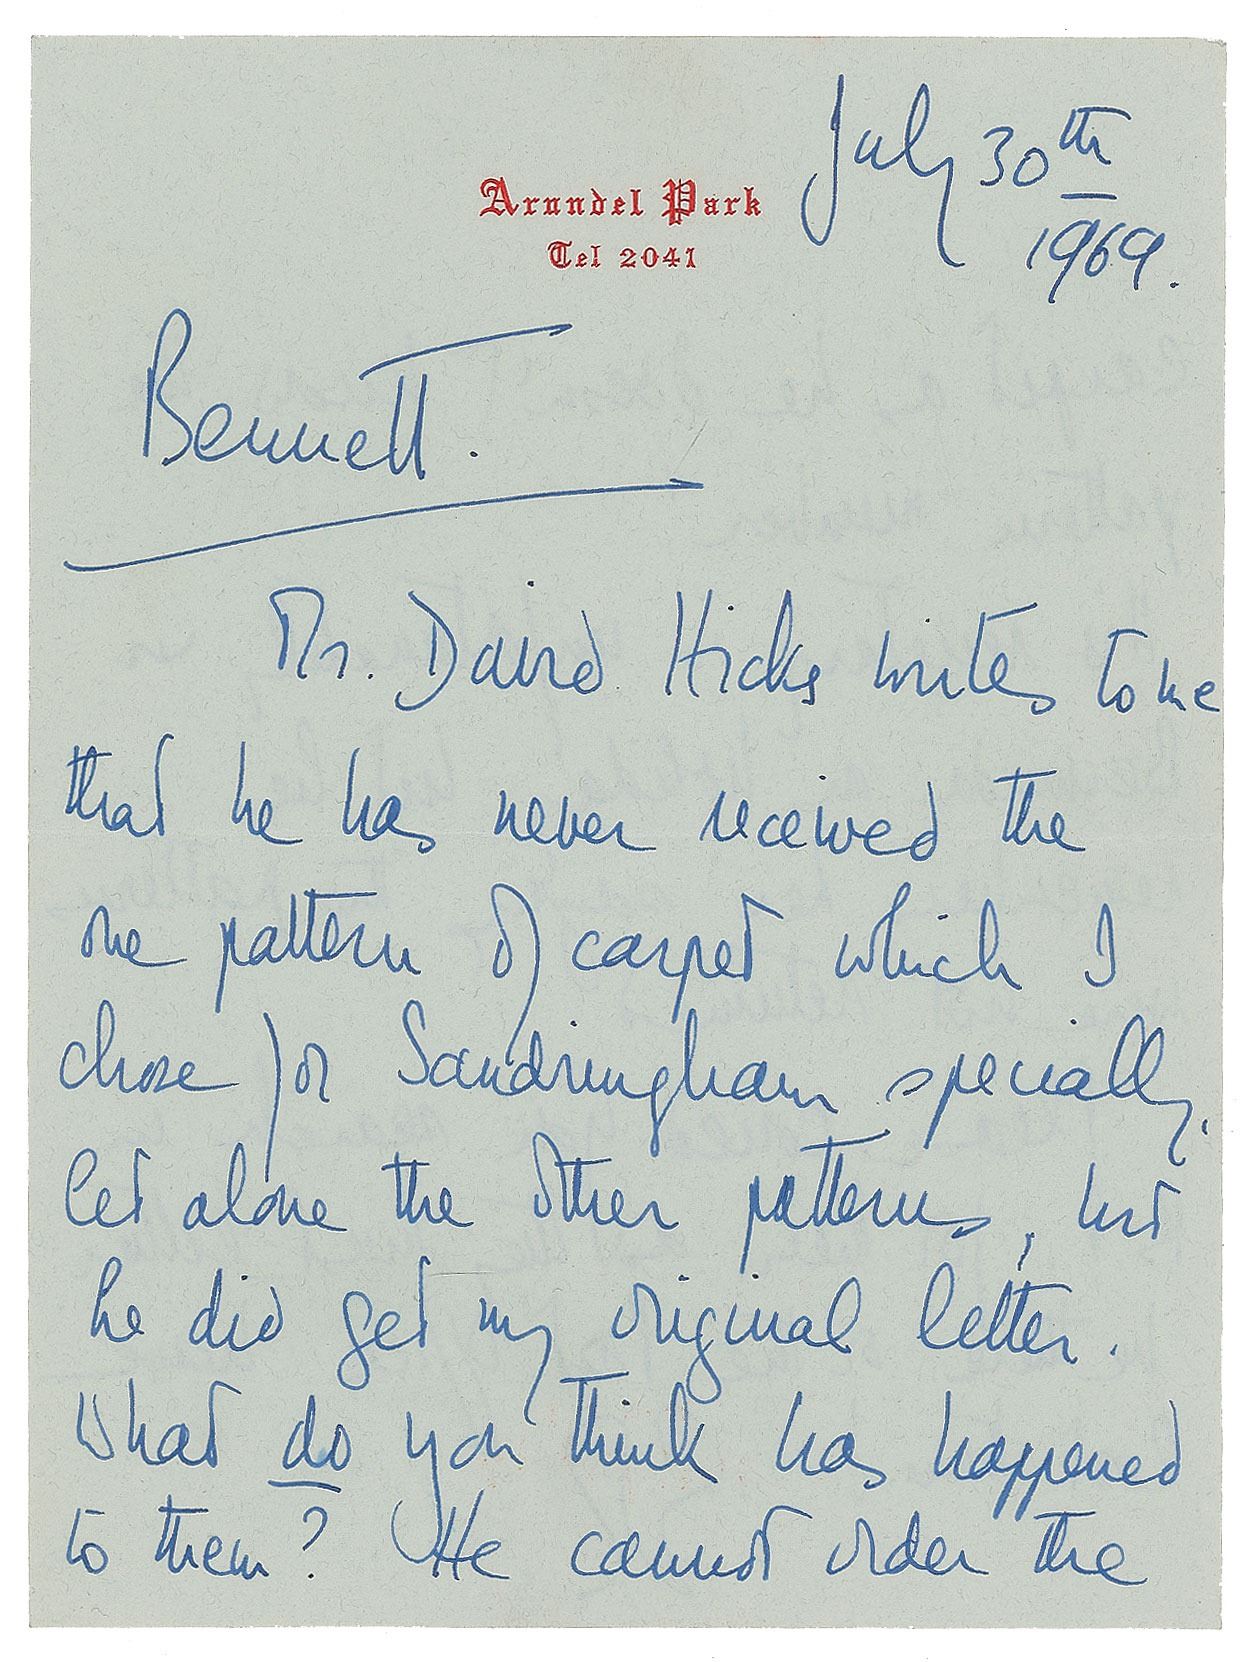 July 30th
1969.
Arundel Park
Tel 2041
Bennett.
Mr. David Hicks writes to me
that he has never received the
one pattern of carpet which I
chose for Sandringham specially,
let alone the other patterns, but
he did get my original letter.
What do you think has happened
to them? He cannot order the